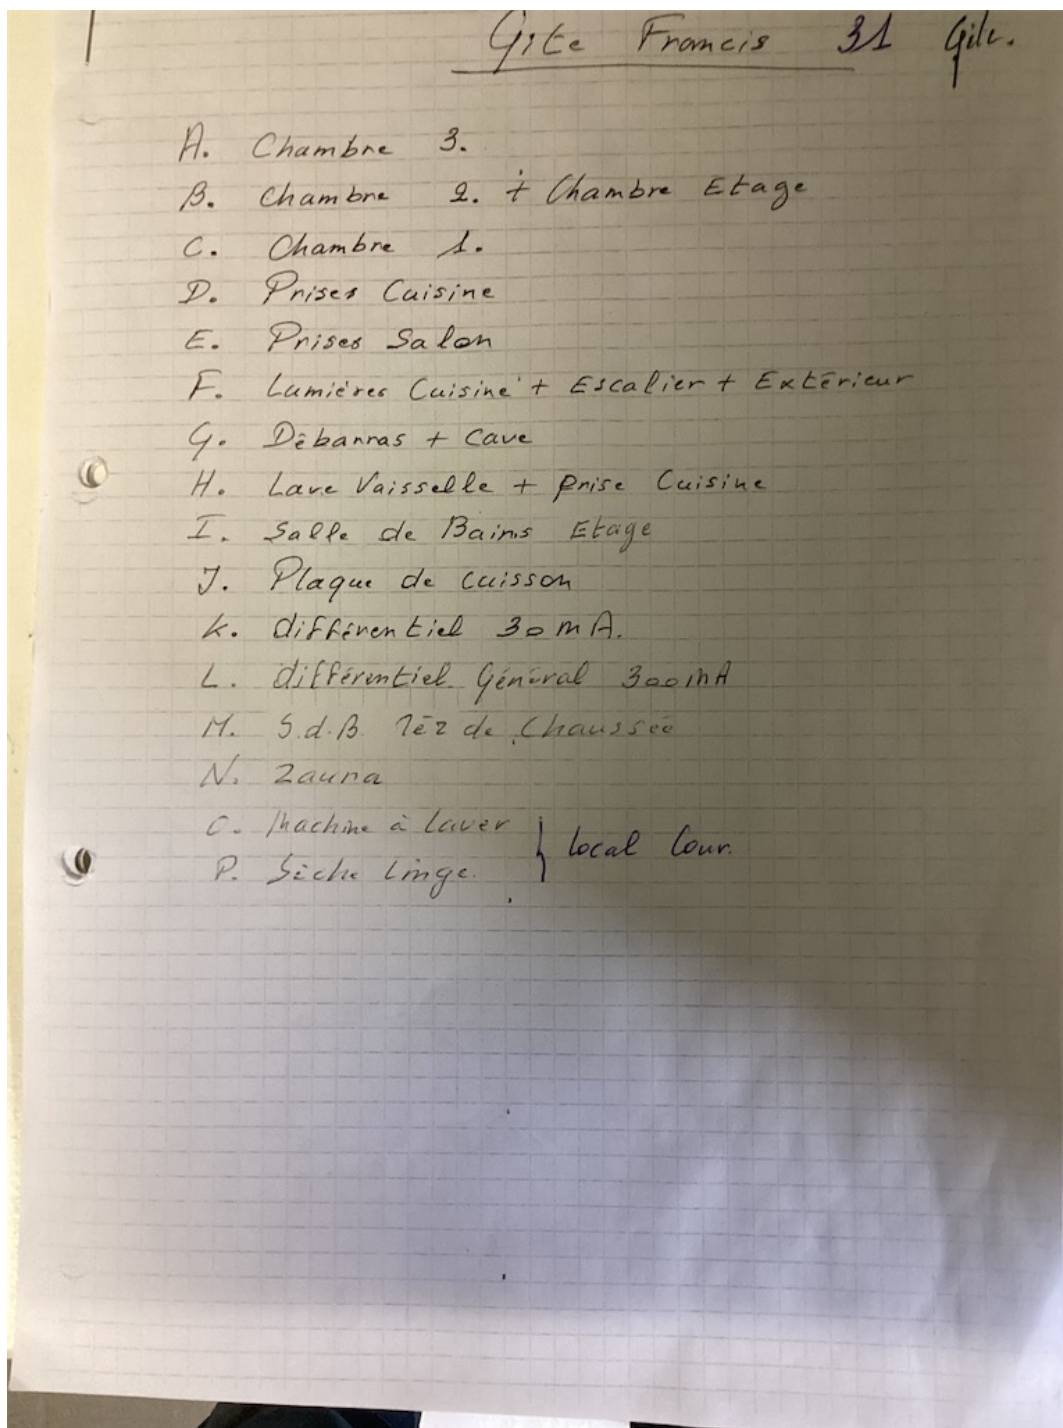 Gite Francis 31 Gite.
A. Chambre 3.
B. Chambre 2. + Chambre Etage
C. Chambre 1.
D. Prises Cuisine
E. Prises Salon
F. Lumières Cuisine + Escalier + Extérieur
G. Débarras + Cave
H. Lave Vaisselle + prise Cuisine
I. Salle de Bains Etage
J. Plaque de cuisson
K. différentiel 30 mA.
L. différentiel Général 300 mA
M. S.d.B. Réz de Chaussée
N. Zauna
O. Machine à laver } local Cour.
P. Sèche Linge.